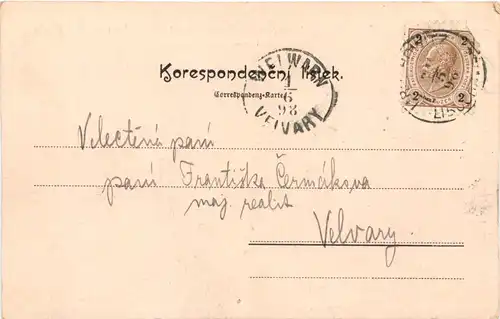 Korespondenční lístek.
Correspondenz-Karte
WELWARN
1
6
98
VELVARY
2 2
2 2
Velectěná paní
paní Františka Čermáková
maj. realit
Velvary